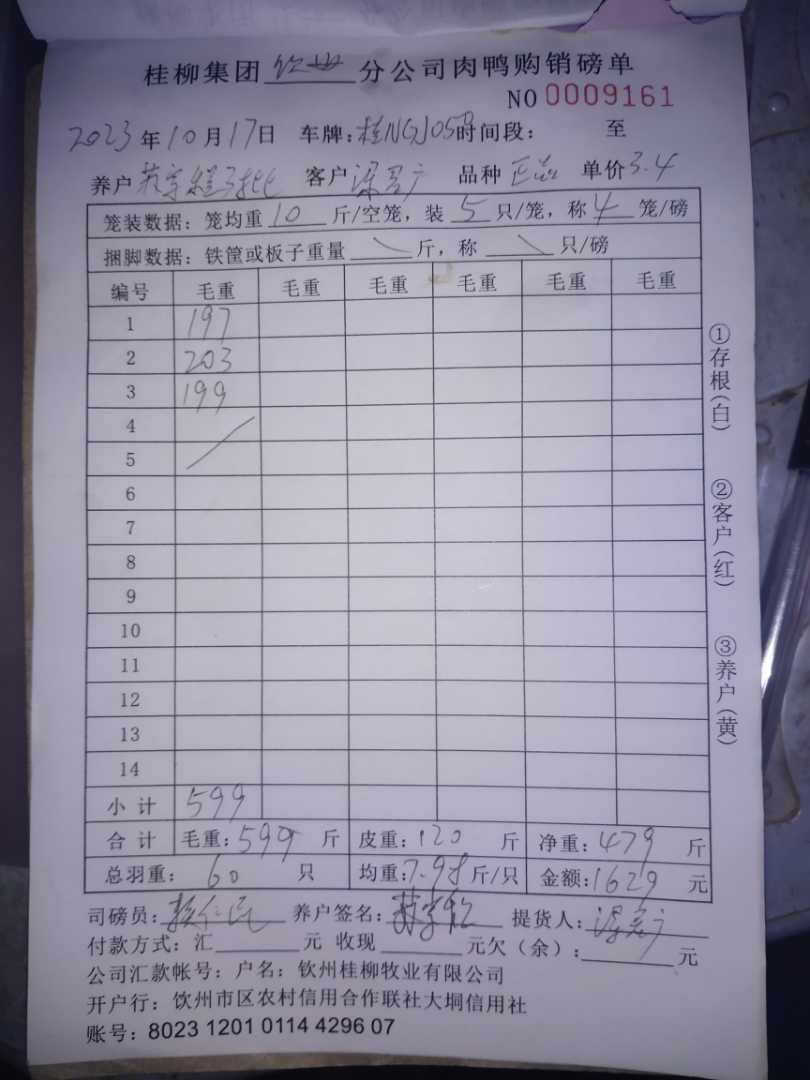 桂柳集团 钦州 分公司肉鸭购销磅单
NO 0009161
2023年10月17日 车牌:桂NGJ059时间段: 至
养户 客户 品种 正品 单价3.4
笼装数据: 笼均重 10 斤/空笼, 装 5 只/笼, 称 4 笼/磅
捆脚数据: 铁筐或板子重量 \ 斤, 称 \ 只/磅
编号 毛重 毛重 毛重 毛重 毛重 毛重
1 197
2 203
3 199
4
5
6
7
8
9
10
11
12
13
14
小计 599
合计 毛重:599 斤 皮重:120 斤 净重:479 斤
总羽重: 60 只 均重:7.98斤/只 金额:1629 元
司磅员: 养户签名: 提货人:
付款方式: 汇 元 收现 元欠(余): 元
公司汇款帐号: 户名: 钦州桂柳牧业有限公司
开户行: 钦州市区农村信用合作联社大垌信用社
账号: 8023 1201 0114 4296 07
①存根(白)
②客户(红)
③养户(黄)